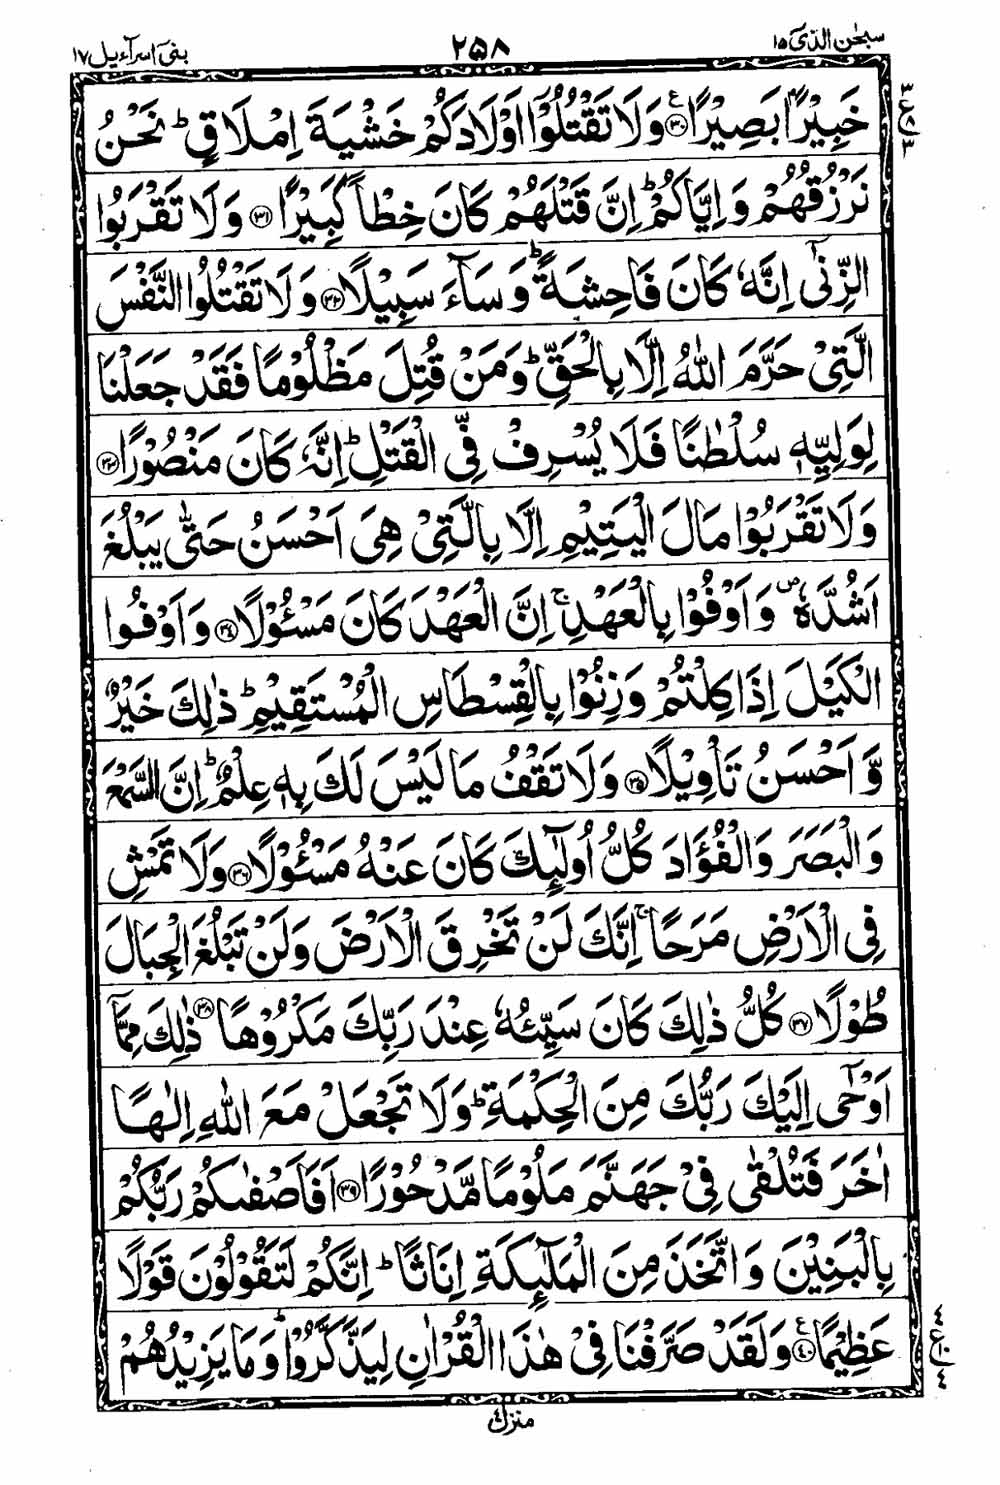 سبحٰن الذی ١٥ ٢٥٨ بنی اسرآءیل ١٧
خَبِيْرًۢا بَصِيْرًا ﴿٣٠﴾ ع وَلَا تَقْتُلُوْۤا اَوْلَادَكُمْ خَشْيَةَ اِمْلَاقٍ ؕ نَحْنُ
نَرْزُقُهُمْ وَ اِيَّاكُمْ ؕ اِنَّ قَتْلَهُمْ كَانَ خِطْاً كَبِيْرًا ﴿٣١﴾ وَلَا تَقْرَبُوا
الزِّنٰۤى اِنَّهٗ كَانَ فَاحِشَةً ؕ وَ سَآءَ سَبِيْلًا ﴿٣٢﴾ وَلَا تَقْتُلُوا النَّفْسَ
الَّتِیْ حَرَّمَ اللّٰهُ اِلَّا بِالْحَقِّ ؕ وَمَنْ قُتِلَ مَظْلُوْمًا فَقَدْ جَعَلْنَا
لِوَلِيِّهٖ سُلْطٰنًا فَلَا يُسْرِفْ فِّی الْقَتْلِ ؕ اِنَّهٗ كَانَ مَنْصُوْرًا ﴿٣٣﴾
وَلَا تَقْرَبُوْا مَالَ الْيَتِيْمِ اِلَّا بِالَّتِیْ هِیَ اَحْسَنُ حَتّٰى يَبْلُغَ
اَشُدَّهٗ ۪ وَ اَوْفُوْا بِالْعَهْدِ ۚ اِنَّ الْعَهْدَ كَانَ مَسْئُوْلًا ﴿٣٤﴾ وَ اَوْفُوا
الْكَيْلَ اِذَا كِلْتُمْ وَزِنُوْا بِالْقِسْطَاسِ الْمُسْتَقِيْمِ ؕ ذٰلِكَ خَيْرٌ
وَّ اَحْسَنُ تَاْوِيْلًا ﴿٣٥﴾ وَلَا تَقْفُ مَا لَيْسَ لَكَ بِهٖ عِلْمٌ ؕ اِنَّ السَّمْعَ
وَالْبَصَرَ وَالْفُؤَادَ كُلُّ اُولٰٓئِكَ كَانَ عَنْهُ مَسْئُوْلًا ﴿٣٦﴾ وَلَا تَمْشِ
فِی الْاَرْضِ مَرَحًا ۚ اِنَّكَ لَنْ تَخْرِقَ الْاَرْضَ وَلَنْ تَبْلُغَ الْجِبَالَ
طُوْلًا ﴿٣٧﴾ كُلُّ ذٰلِكَ كَانَ سَيِّئُهٗ عِنْدَ رَبِّكَ مَكْرُوْهًا ﴿٣٨﴾ ذٰلِكَ مِمَّاۤ
اَوْحٰۤى اِلَيْكَ رَبُّكَ مِنَ الْحِكْمَةِ ؕ وَلَا تَجْعَلْ مَعَ اللّٰهِ اِلٰهًا
اٰخَرَ فَتُلْقٰى فِیْ جَهَنَّمَ مَلُوْمًا مَّدْحُوْرًا ﴿٣٩﴾ اَفَاَصْفٰىكُمْ رَبُّكُمْ
بِالْبَنِيْنَ وَ اتَّخَذَ مِنَ الْمَلٰٓئِكَةِ اِنَاثًا ؕ اِنَّكُمْ لَتَقُوْلُوْنَ قَوْلًا
عَظِيْمًا ﴿٤٠﴾ ع وَلَقَدْ صَرَّفْنَا فِیْ هٰذَا الْقُرْاٰنِ لِيَذَّكَّرُوْا ؕ وَمَا يَزِيْدُهُمْ
منزل ٤